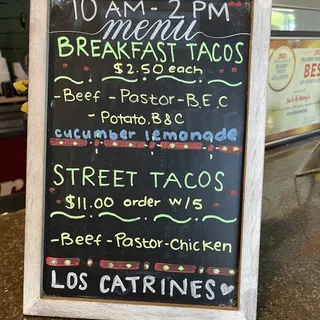 10 AM - 2 PM
menu
BREAKFAST TACOS
$2.50 each
-Beef-Pastor-B.E.C
-Potato.B&C
cucumber lemonade
STREET TACOS
$11.00 order w/5
-Beef-Pastor-Chicken
LOS CATRINES
BES